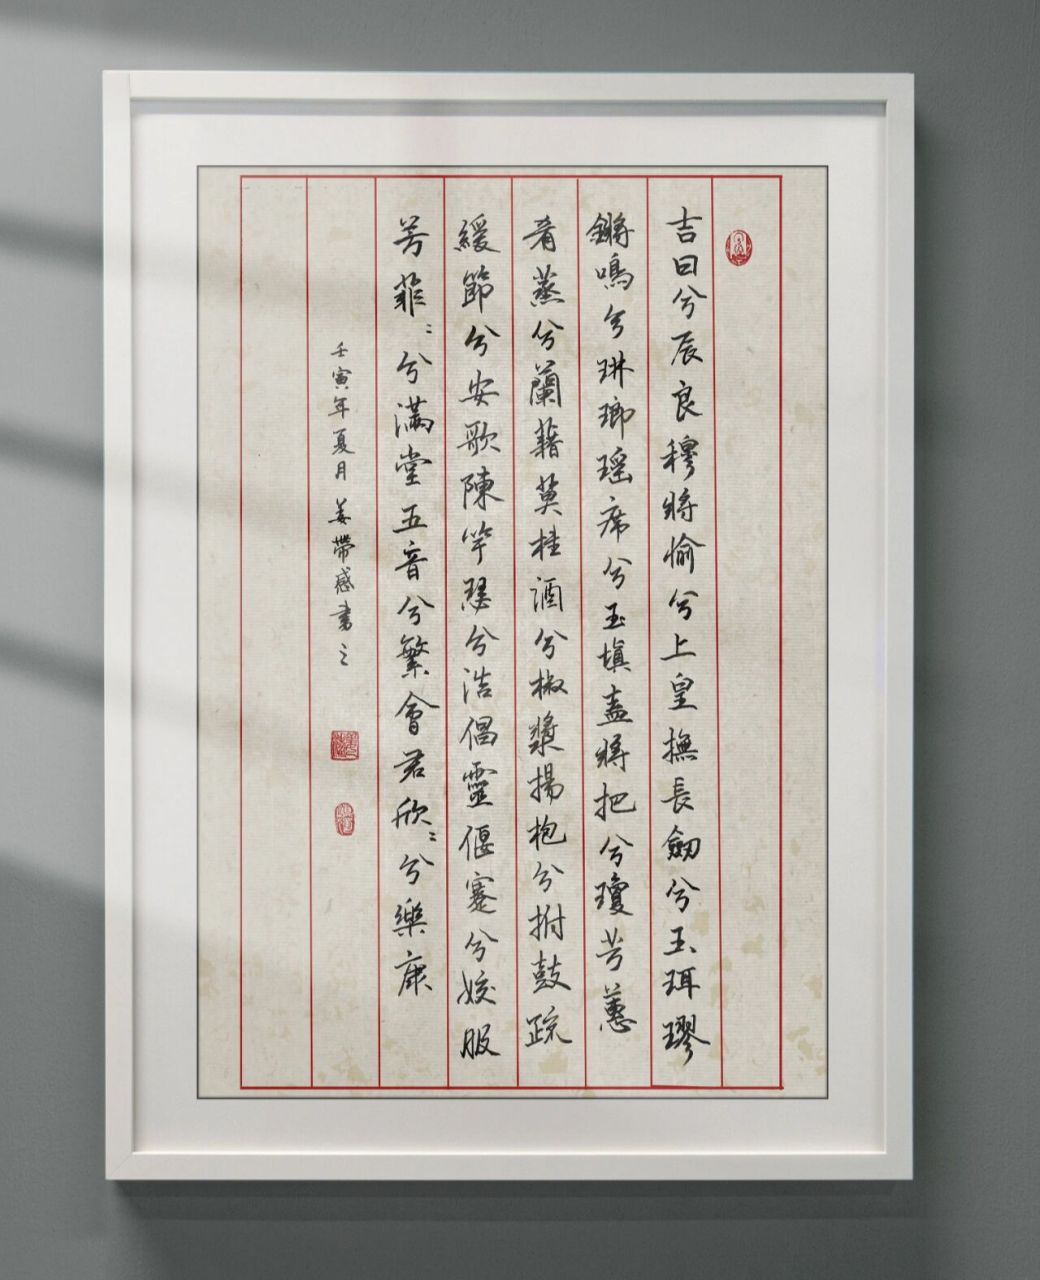 吉日兮辰良穆將愉兮上皇撫長劒兮玉珥璆
鏘鳴兮琳瑯瑶席兮玉瑱盍將把兮瓊芳蕙
肴蒸兮蘭藉奠桂酒兮椒漿揚枹兮拊鼓疏
緩節兮安歌陳竽瑟兮浩倡靈偃蹇兮姣服
芳菲〻兮滿堂五音兮繁會君欣〻兮樂康
壬寅年夏月姜帶感書之